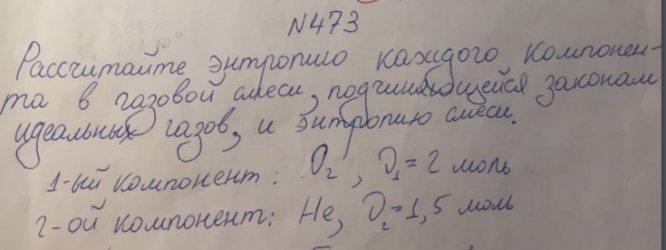 N473
Рассчитайте энтропию каждого компонен-
та в газовой смеси, подчиняющейся законам
идеальных газов, и энтропию смеси.
1-ый компонент: O₂, υ₁ = 2 моль
2-ой компонент: He, υ₂ = 1,5 моль